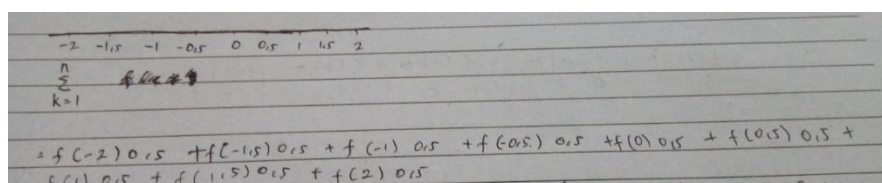 -2 -1,5 -1 -0,5 0 0,5 1 1,5 2
n
Σ
k=1
= f(-2) 0,5 + f(-1,5) 0,5 + f(-1) 0,5 + f(-0,5) 0,5 + f(0) 0,5 + f(0,5) 0,5 +
f(1) 0,5 + f(1,5) 0,5 + f(2) 0,5